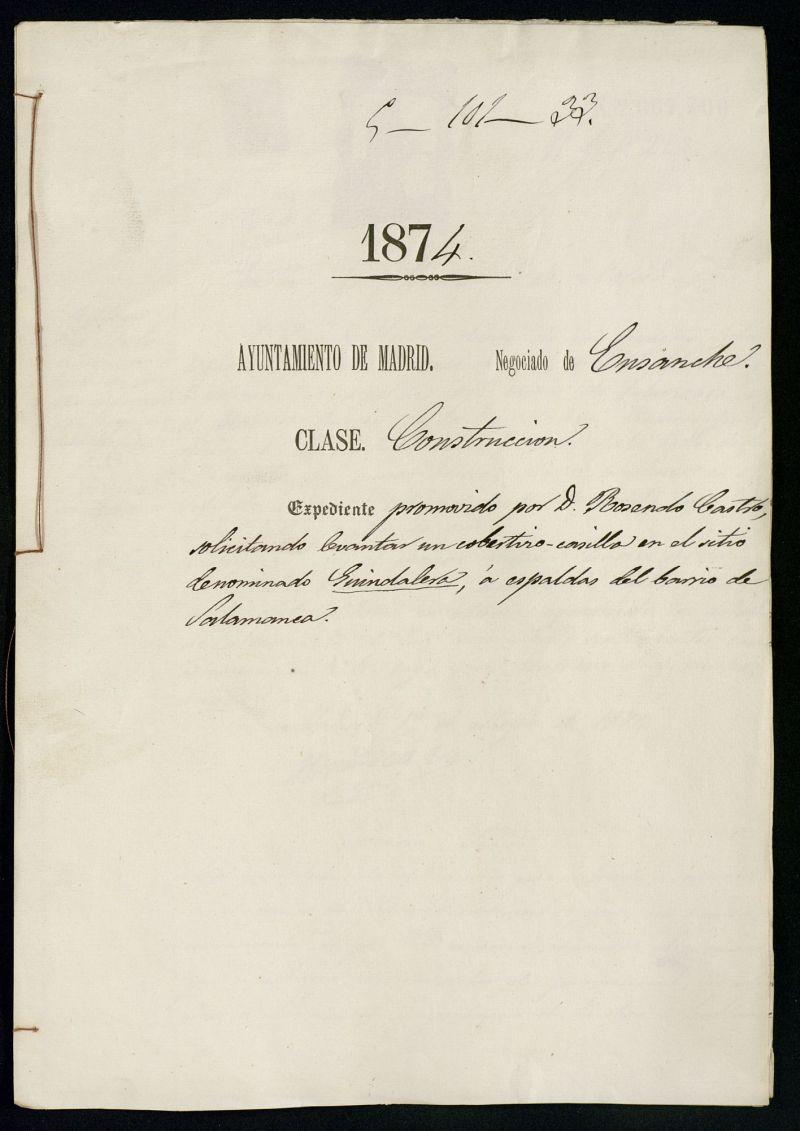 5 — 101 — 33.
1874.
AYUNTAMIENTO DE MADRID. Negociado de Ensanche.
CLASE. Construccion.
Expediente promovido por D. Rosendo Castro,
solicitando levantar un cobertizo-casilla en el sitio
denominado Guindalera, á espaldas del barrio de
Salamanca.